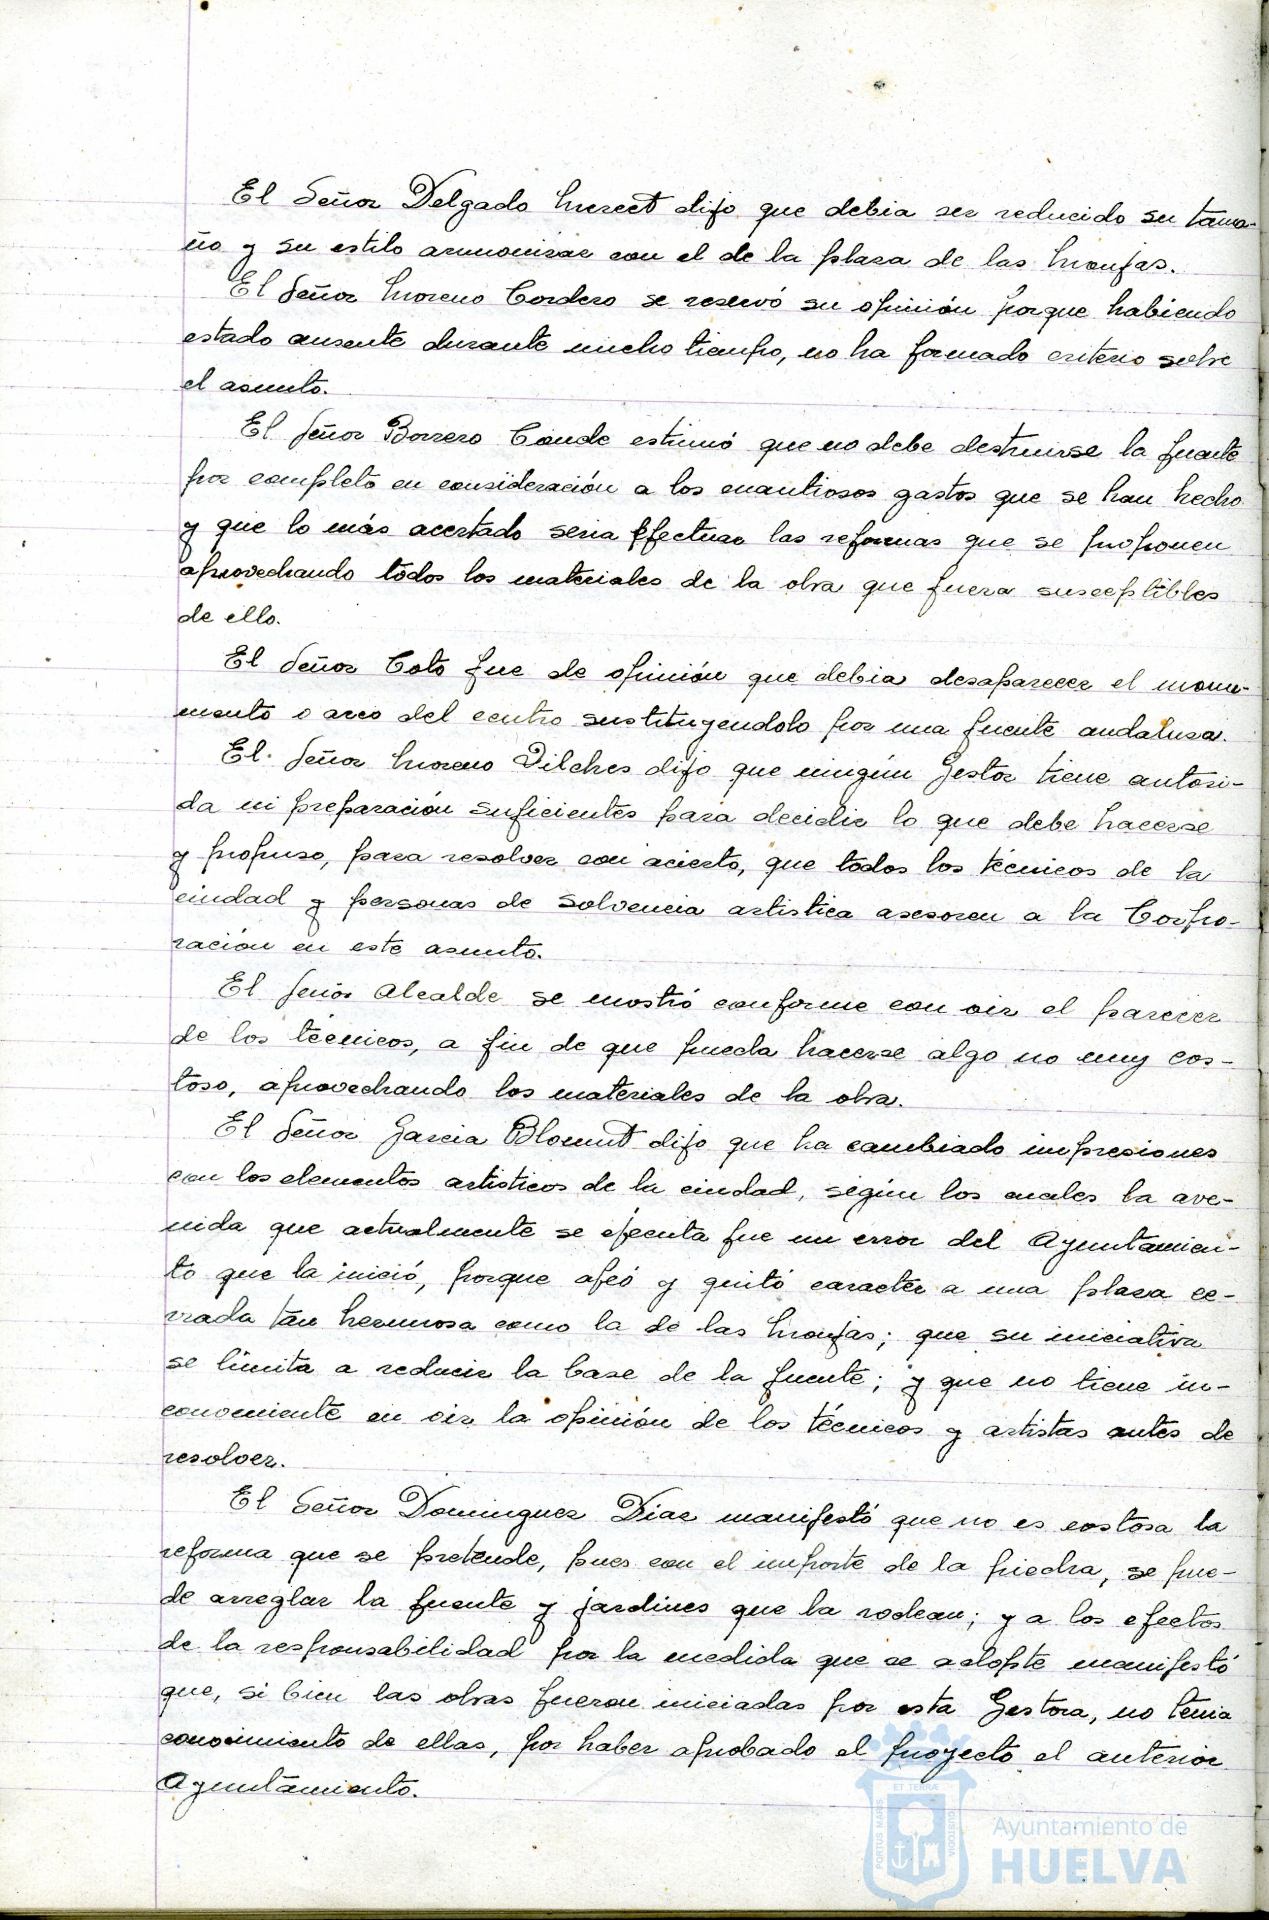 El Señor Delgado Merect dijo que debia ser reducido su tama-
ño y su estilo armonizar con el de la plaza de las Monjas.
El Señor Moreno Cordero se reservó su opinión porque habiendo
estado ausente durante mucho tiempo, no ha formado criterio sobre
el asunto.
El Señor Borrero Conde estimó que no debe destruirse la fuente
por completo en consideración a los cuantiosos gastos que se han hecho
y que lo más acertado seria efectuar las reformas que se proponen
aprovechando todos los materiales de la obra que fuera susceptibles
de ello.
El Señor Coto fue de opinión que debia desaparecer el monu-
mento o arco del centro sustituyendolo por una fuente andaluza.
El Señor Moreno Vilches dijo que ningún Gestor tiene autori-
da ni preparación suficientes para decidir lo que debe hacerse
y propuso, para resolver con acierto, que todos los técnicos de la
ciudad y personas de solvencia artistica asesoren a la Corpo-
ración en este asunto.
El Señor Alcalde se mostró conforme con oir el parecer
de los técnicos, a fin de que pueda hacerse algo no muy cos-
toso, aprovechando los materiales de la obra.
El Señor Garcia Blomut dijo que ha cambiado impresiones
con los elementos artisticos de la ciudad, según los cuales la ave-
nida que actualmente se ejecuta fue un error del Ayuntamien-
to que la inició, porque afeó y quitó caracter a una plaza ce-
rrada tan hermosa como la de las Monjas; que su iniciativa
se limita a reducir la base de la fuente; y que no tiene in-
conveniente en oir la opinión de los técnicos y artistas antes de
resolver.
El Señor Dominguez Diaz manifestó que no es costosa la
reforma que se pretende, pues con el importe de la piedra, se pue-
de arreglar la fuente y jardines que la rodean; y a los efectos
de la responsabilidad por la medida que se adopte manifestó
que, si bien las obras fueron iniciadas por esta Gestora, no tenia
conocimiento de ellas, por haber aprobado el proyecto el anterior
Ayuntamiento.
PORTUS MARIS ET TERRÆ CUSTODIA
Ayuntamiento de
HUELVA